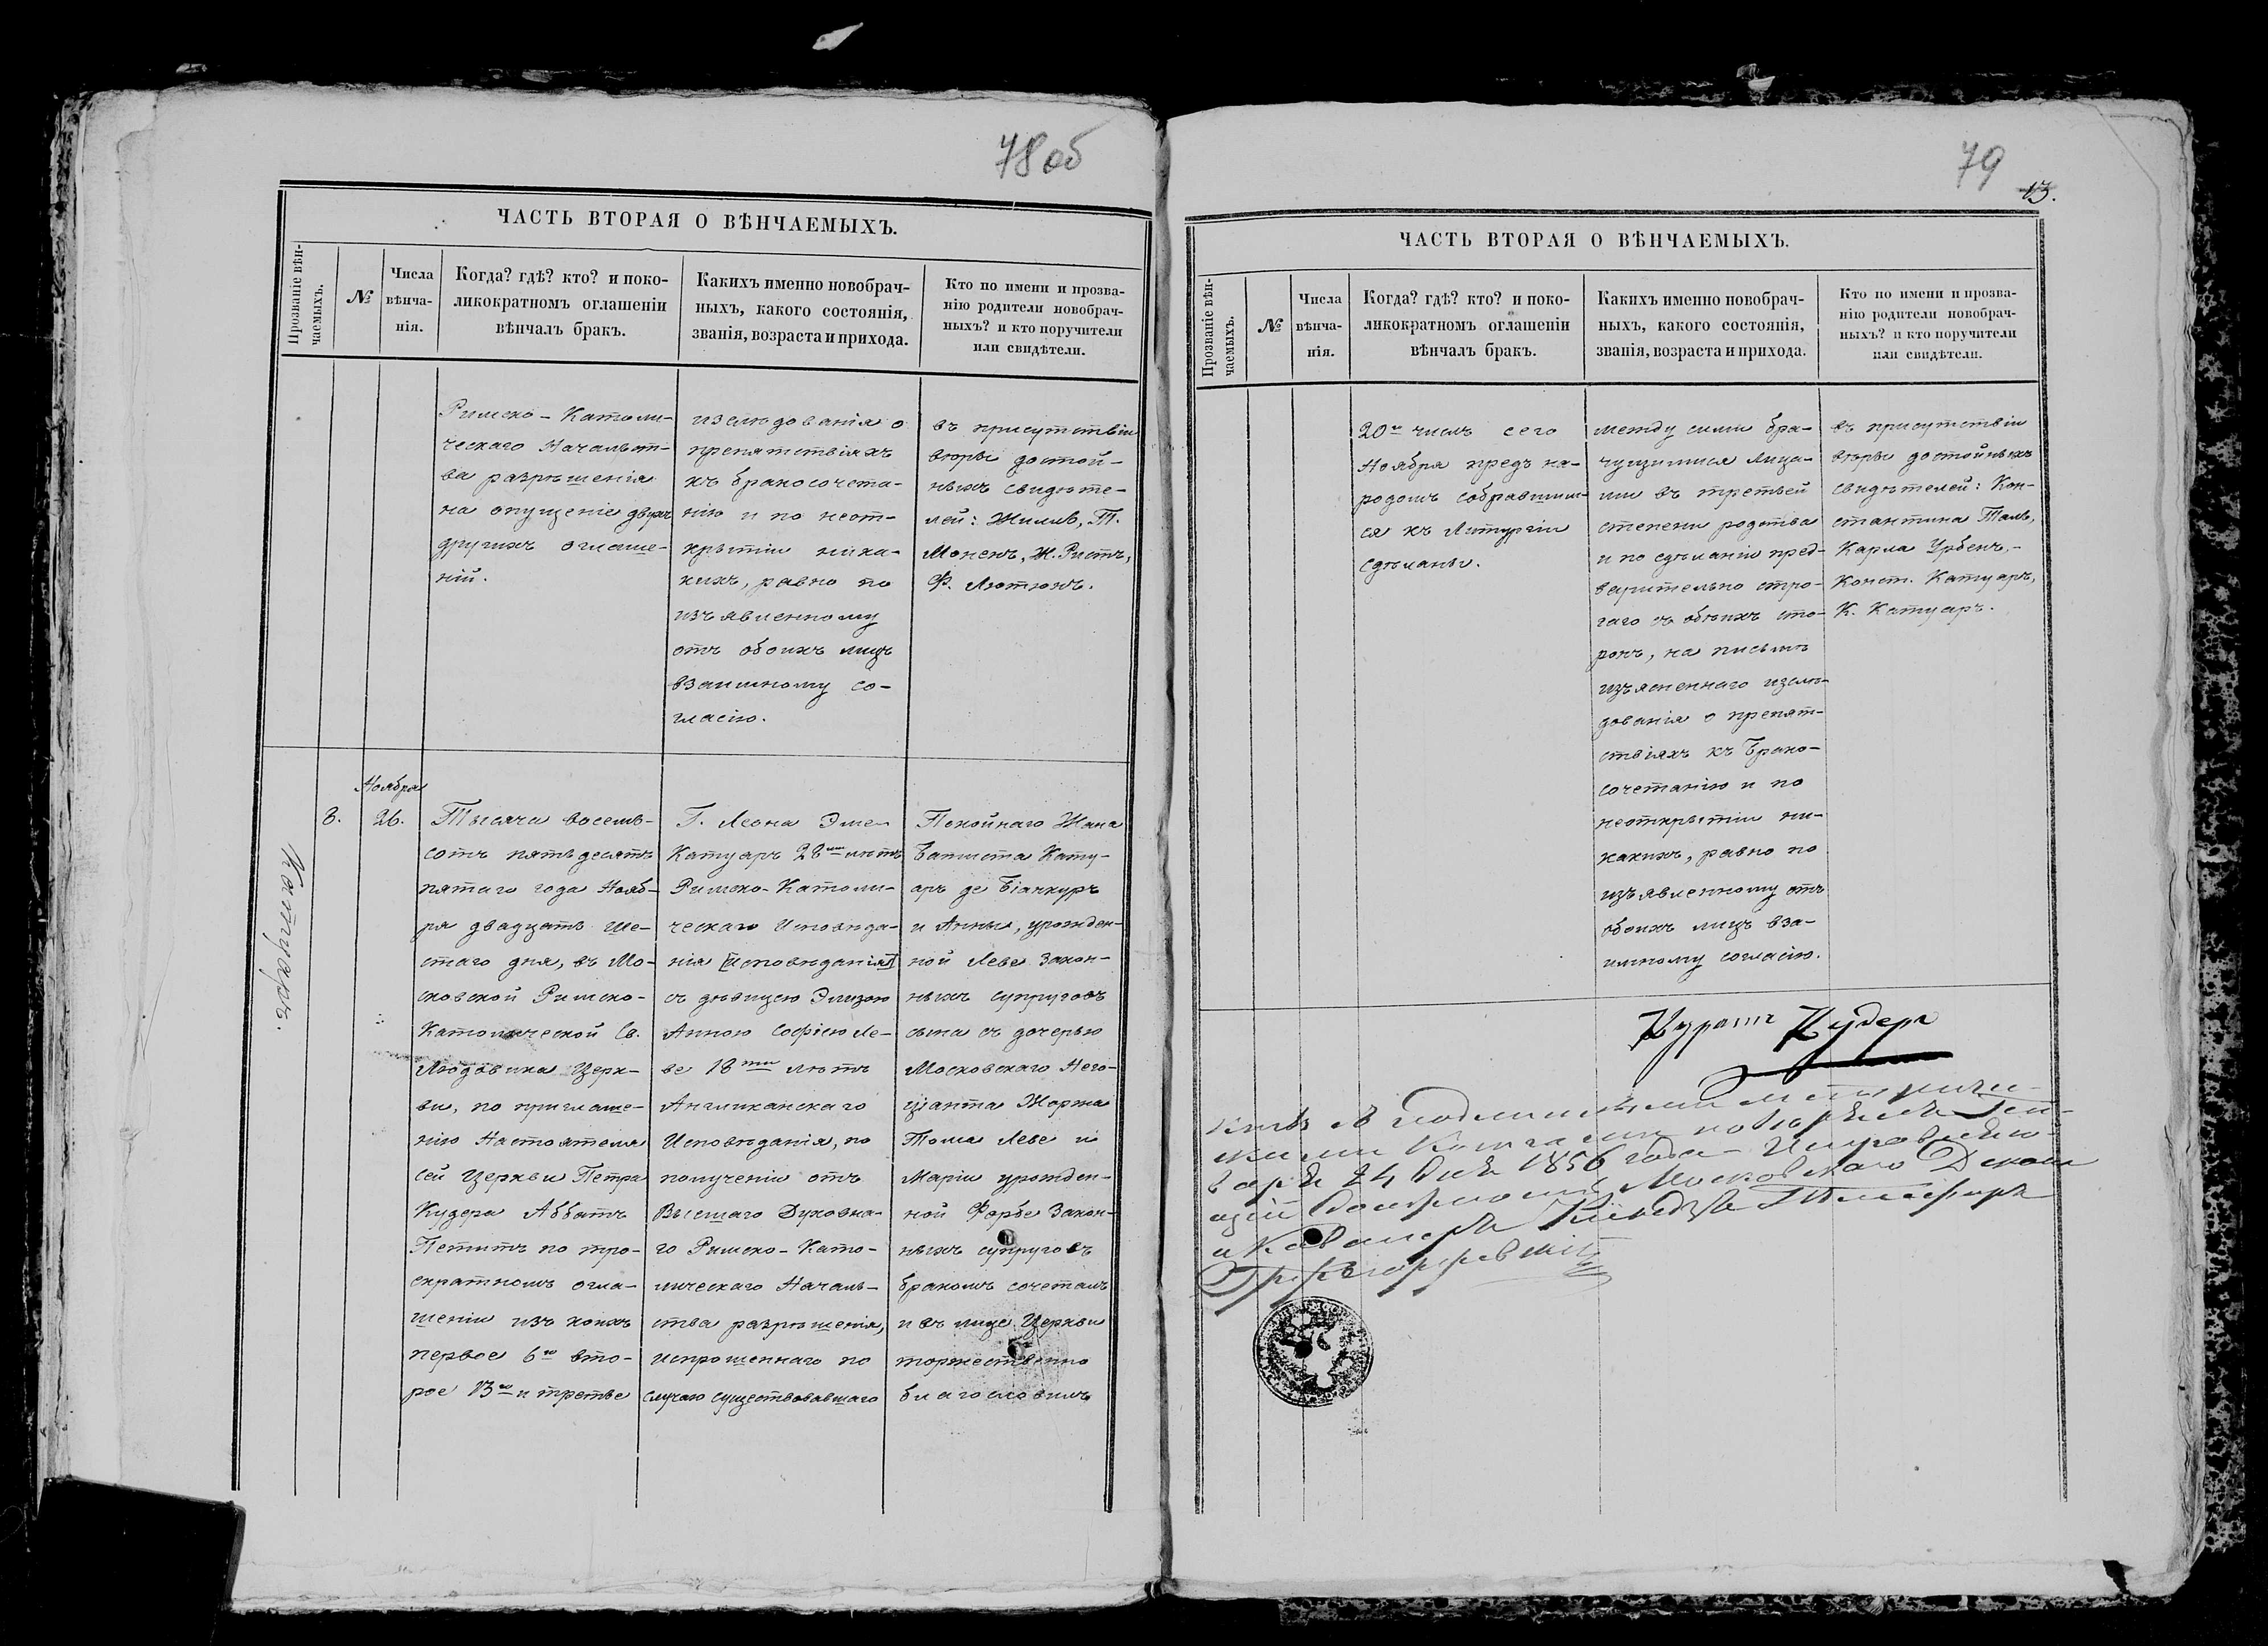 78 об
ЧАСТЬ ВТОРАЯ О ВѢНЧАЕМЫХЪ.
Прозваніе вѣн-
чаемыхъ.
№
Числа
вѣнча-
нія.
Когда? гдѣ? кто? и поко-
ликократномъ оглашеніи
вѣнчалъ бракъ.
Какихъ именно новобрач-
ныхъ, какого состоянія,
званія, возраста и прихода.
Кто по имени и прозва-
нію родители новобрач-
ныхъ? и кто поручители
или свидѣтели.
Римско-Католи-
ческаго Начальст-
ва разрѣшенія
на опущеніе двухъ
другихъ оглаше-
ній.
изслѣдованія о
препятствіяхъ
къ бракосочета-
нію и по неот-
крытіи ника-
кихъ, равно по
изъявленному
отъ обоихъ лицъ
взаимному со-
гласію.
въ присутствіи
вѣры достой-
ныхъ свидѣте-
лей: Жилле, Т.
Моненъ, Ж. Ристъ,
Ф. Лютюнъ.
Катуаръ.
8.
Ноября
26.
Тысяча восемь-
сотъ пятьдесятъ
пятаго года Нояб-
ря двадцать ше-
стаго дня, въ Мо-
сковской Римско-
Католической Св.
Людовика Церк-
ви, по приглаше-
нію Настоятеля
сей Церкви Петра
Кудера Аббатъ
Петитъ по тро-
екратномъ огла-
шеніи изъ коихъ
первое 6го вто-
рое 13го и третье
Г. Леона Эме-
Катуаръ 28ми лѣтъ
Римско-Католи-
ческаго Исповѣда-
нія [Исповѣданія]
съ дѣвицею Элизою
Анною Софіею Ле-
ве 18ти лѣтъ
Англиканскаго
Исповѣданія, по
полученіи отъ
Высшаго Духовна-
го Римско-Като-
лическаго Началь-
ства разрѣшенія,
испрошеннаго по
случаю существовавшаго
Покойнаго Жана
Батиста Кату-
аръ де Біанкуръ
и Анны, урожден-
ной Леве Закон-
ныхъ супруговъ
сына съ дочерью
Московскаго Него-
ціанта Жоржа
Тома Леве и
Маріи урожден-
ной Форбе Закон-
ныхъ супруговъ
бракомъ сочеталъ
и въ лице Церкви
торжественно
благословилъ
79
13.
ЧАСТЬ ВТОРАЯ О ВѢНЧАЕМЫХЪ.
Прозваніе вѣн-
чаемыхъ.
№
Числа
вѣнча-
нія.
Когда? гдѣ? кто? и поко-
ликократномъ оглашеніи
вѣнчалъ бракъ.
Какихъ именно новобрач-
ныхъ, какого состоянія,
званія, возраста и прихода.
Кто по имени и прозва-
нію родители новобрач-
ныхъ? и кто поручители
или свидѣтели.
20го числъ сего
Ноября предъ на-
родомъ собравшим-
ся къ Литургіи
сдѣланы.
между сими бра-
чущимися лица-
ми въ третьей
степени родства
и по сдѣланіи пред-
варительно стро-
гаго съ обѣихъ сто-
ронъ, на письмѣ
изъясненнаго изслѣ-
дованія о препят-
ствіяхъ къ Брако-
сочетанію и по
неоткрытіи ни-
какихъ, равно по
изъявленному отъ
обоихъ лицъ вза-
имному согласію.
въ присутствіи
вѣры достойныхъ
свидѣтелей: Кон-
стантина Таль,
Карла Урбенъ,-
Конст. Катуаръ,
К. Катуаръ.
Куратъ Кудеръ
съ подлинными метриче-
скими Книгами повѣрялъ Ген-
варя 24 дня 1856 года- Исправляю-
щій Московскаго Декана
и Кавалеръ Ксендзъ